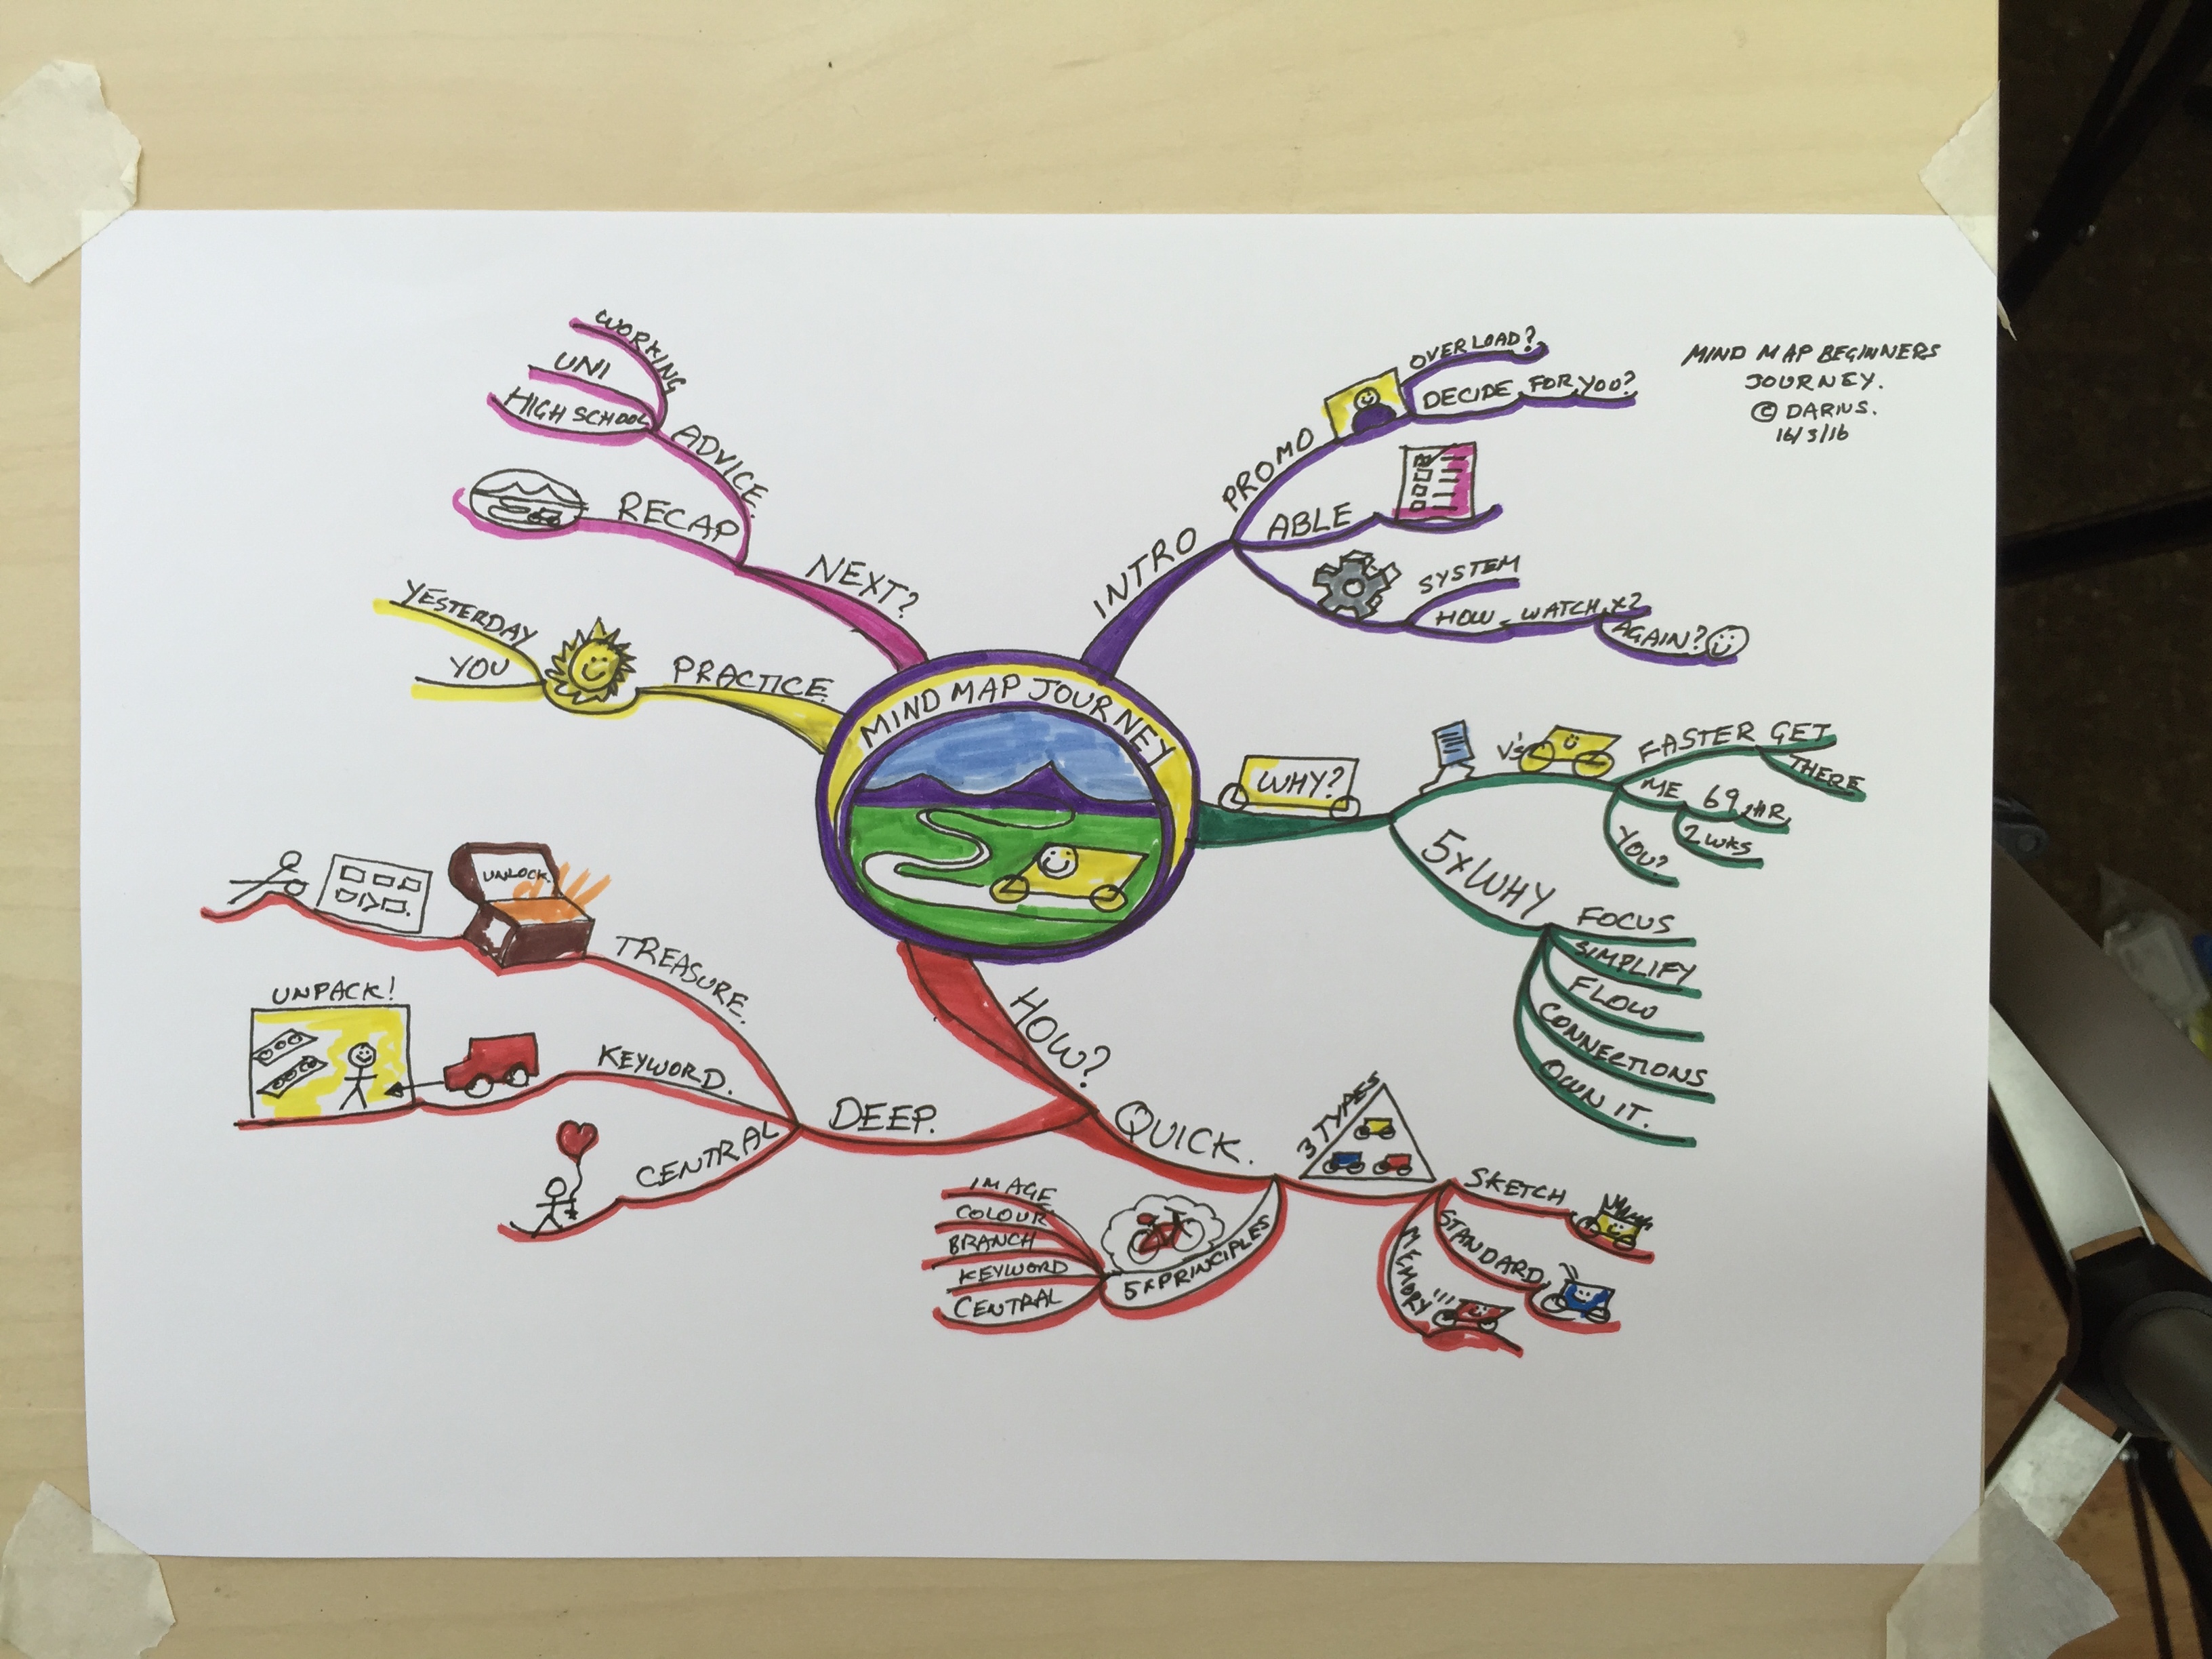 MIND MAP BEGINNERS
JOURNEY.
© DARIUS.
16/3/16
MIND MAP JOURNEY
INTRO
PROMO
OVERLOAD?
DECIDE FOR YOU?
ABLE
SYSTEM
HOW WATCH x2
AGAIN?
WHY?
V's
FASTER GET
THERE
ME 69 HR
2 WKS
YOU?
5xWHY
FOCUS
SIMPLIFY
FLOW
CONNECTIONS
OWN IT.
HOW?
QUICK.
3 TYPES
SKETCH
STANDARD
MEMORY
5xPRINCIPLES
IMAGE
COLOUR
BRANCH
KEYWORD
CENTRAL
DEEP.
TREASURE.
UNLOCK.
KEYWORD.
UNPACK!
CENTRAL
PRACTICE
YESTERDAY
YOU
NEXT?
ADVICE.
WORKING
UNI
HIGH SCHOOL
RECAP